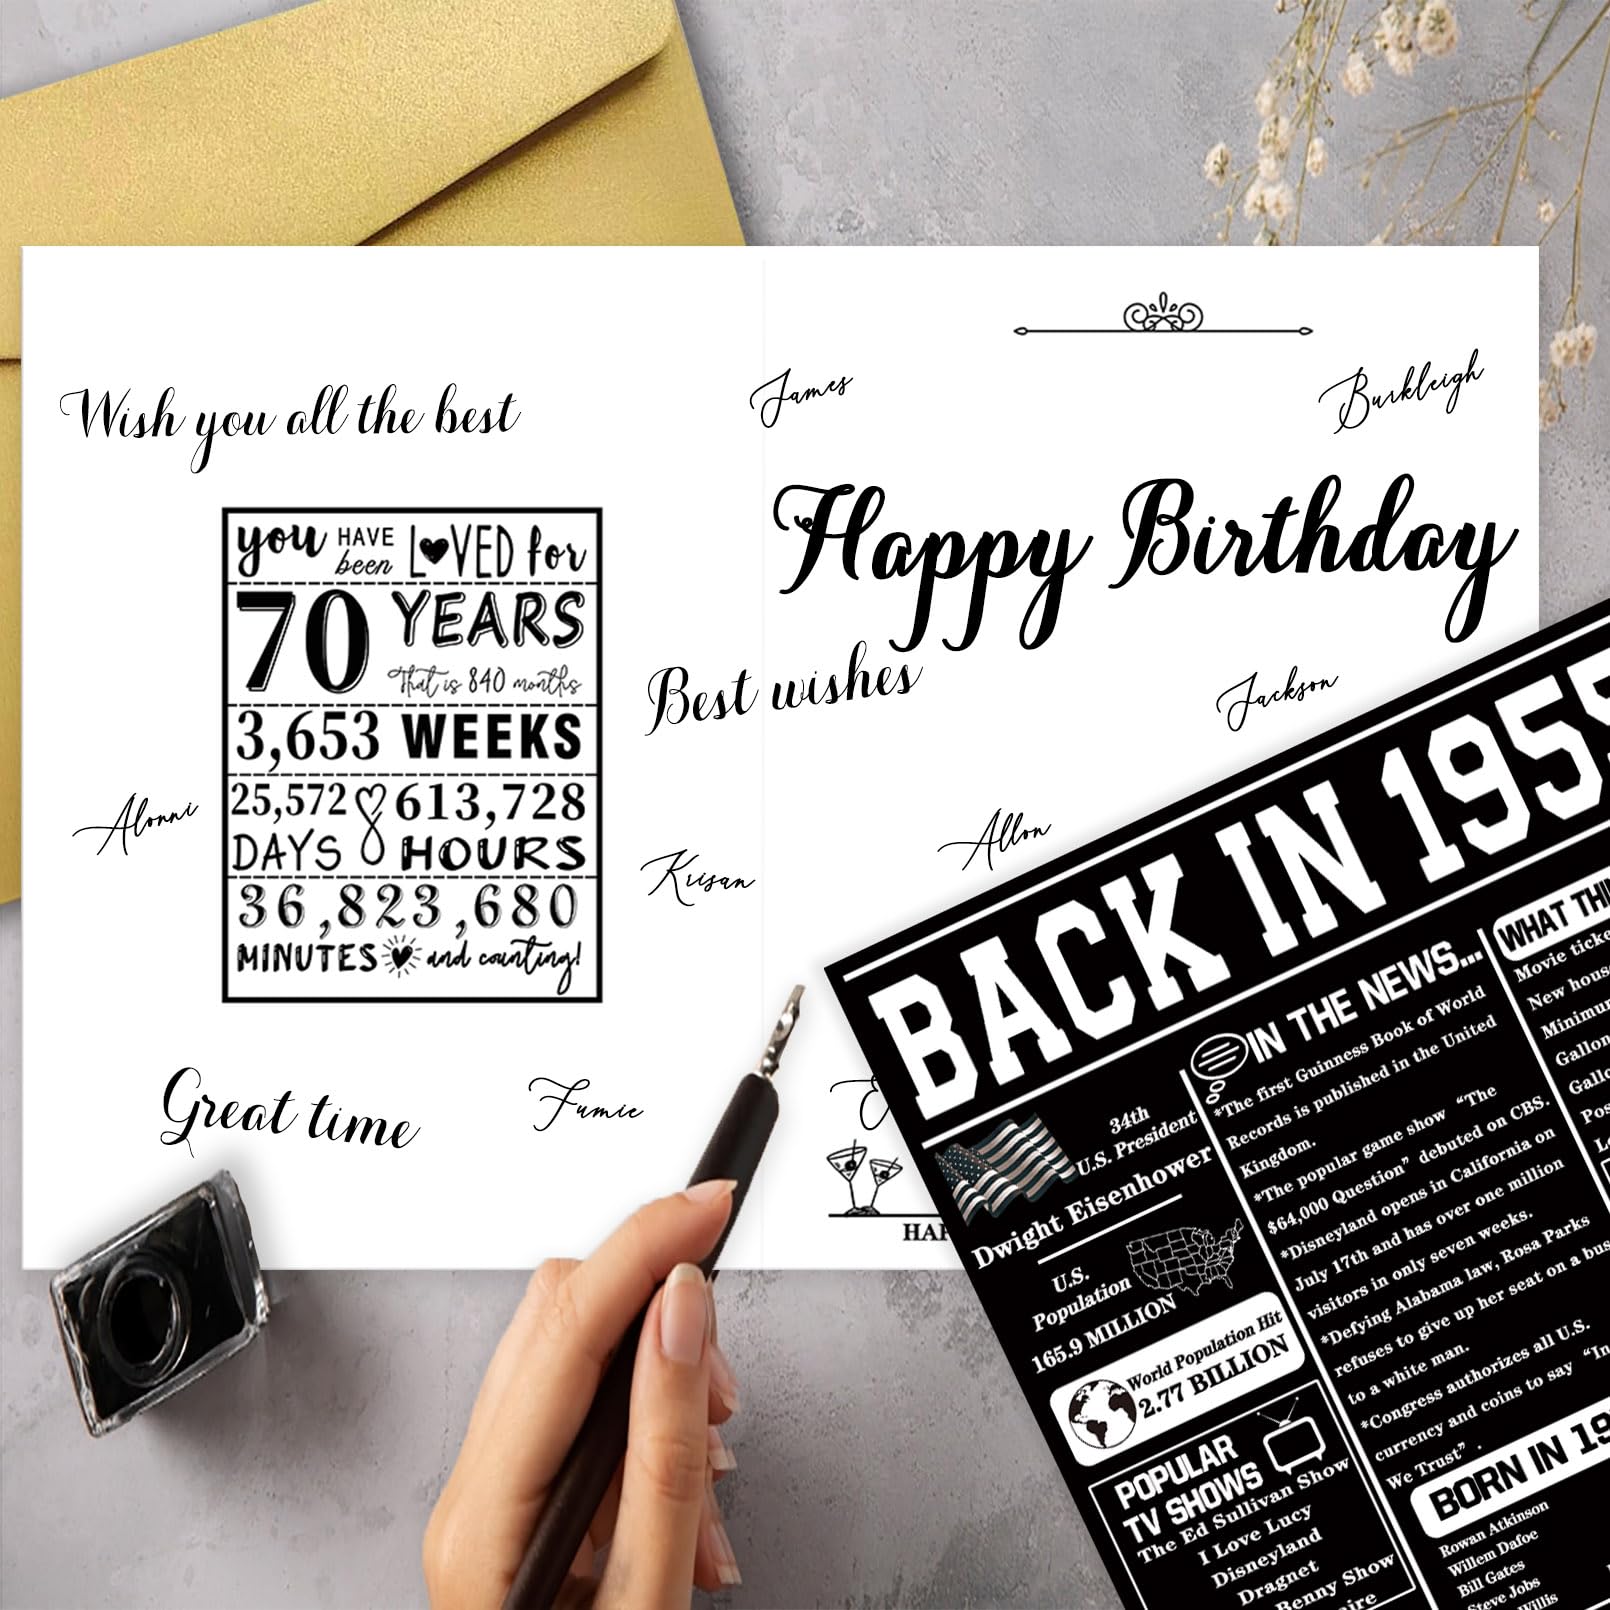 Wish you all the best
James
Burkleigh
Happy Birthday
you HAVE been LOVED for
70 YEARS
That is 840 months
3,653 WEEKS
25,572 DAYS
613,728 HOURS
36,823,680
MINUTES and counting!
Best wishes
Jackson
Alonni
Krisan
Allon
Great time
Fumie
HAP
BACK IN 1955
34th
U.S. President
Dwight Eisenhower
U.S.
Population
165.9 MILLION
World Population Hit
2.77 BILLION
POPULAR
TV SHOWS
The Ed Sullivan Show
I Love Lucy
Disneyland
Dragnet
enny Show
ire
IN THE NEWS...
*The first Guinness Book of World
Records is published in the United
Kingdom.
*The popular game show “The
$64,000 Question” debuted on CBS.
*Disneyland opens in California on
July 17th and has over one million
visitors in only seven weeks.
*Defying Alabama law, Rosa Parks
refuses to give up her seat on a bus
to a white man.
*Congress authorizes all U.S.
currency and coins to say “In
We Trust” .
WHAT THI
Movie ticke
New hous
Minimum
Gallon
Gallo
Pos
L
BORN IN 19
Rowan Atkinson
Willem Dafoe
Bill Gates
Steve Jobs
Willis